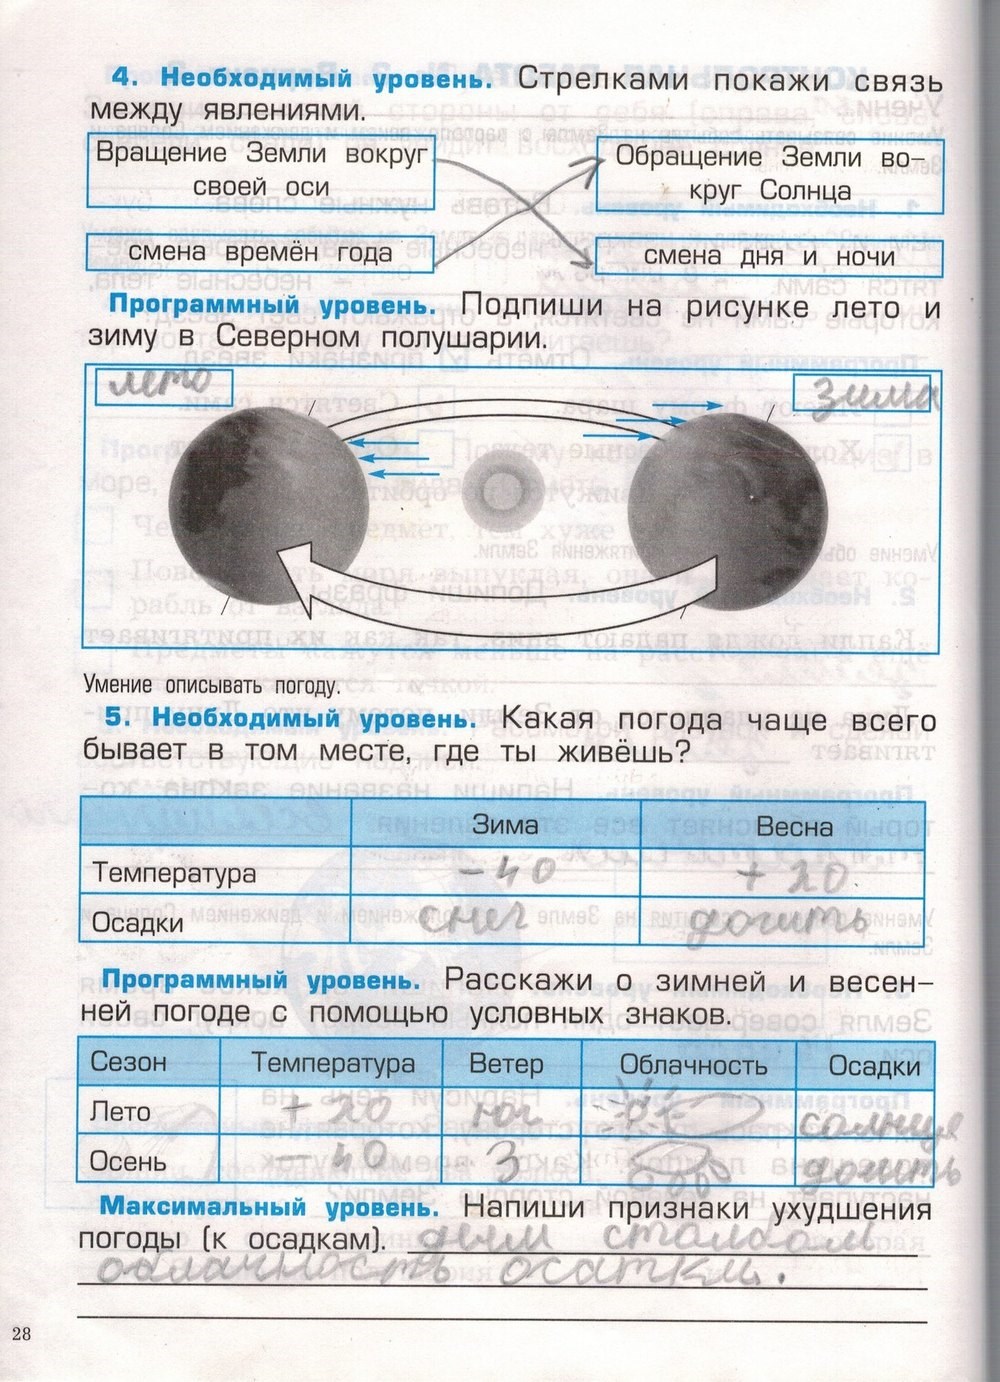 4. Необходимый уровень. Стрелками покажи связь
между явлениями.
Вращение Земли вокруг
своей оси
Обращение Земли во-
круг Солнца
смена времён года
смена дня и ночи
Программный уровень. Подпиши на рисунке лето и
зиму в Северном полушарии.
лето
зима
Умение описывать погоду.
5. Необходимый уровень. Какая погода чаще всего
бывает в том месте, где ты живёшь?
Зима Весна
Температура -40 +20
Осадки снег дождь
Программный уровень. Расскажи о зимней и весен-
ней погоде с помощью условных знаков.
Сезон Температура Ветер Облачность Осадки
Лето +20 юг солнце
Осень -40 З дождь
Максимальный уровень. Напиши признаки ухудшения
погоды (к осадкам). дым столбом
облачность осатки.
28